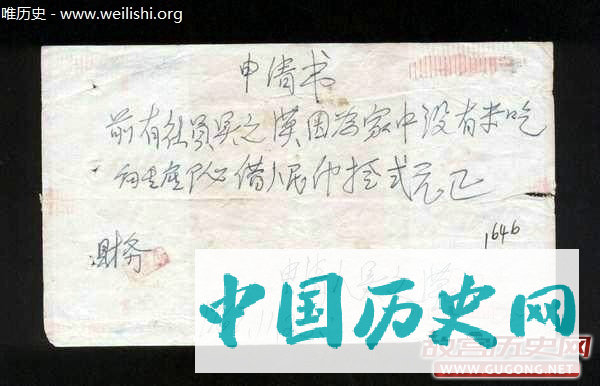 唯历史 - www.weilishi.org
申请书
前有社员吴之漢因为家中没有米吃
向生产队借人民币拾弍元正
1646
财务
中国历史网
故宫历史网
WWW.GUGONG.NET